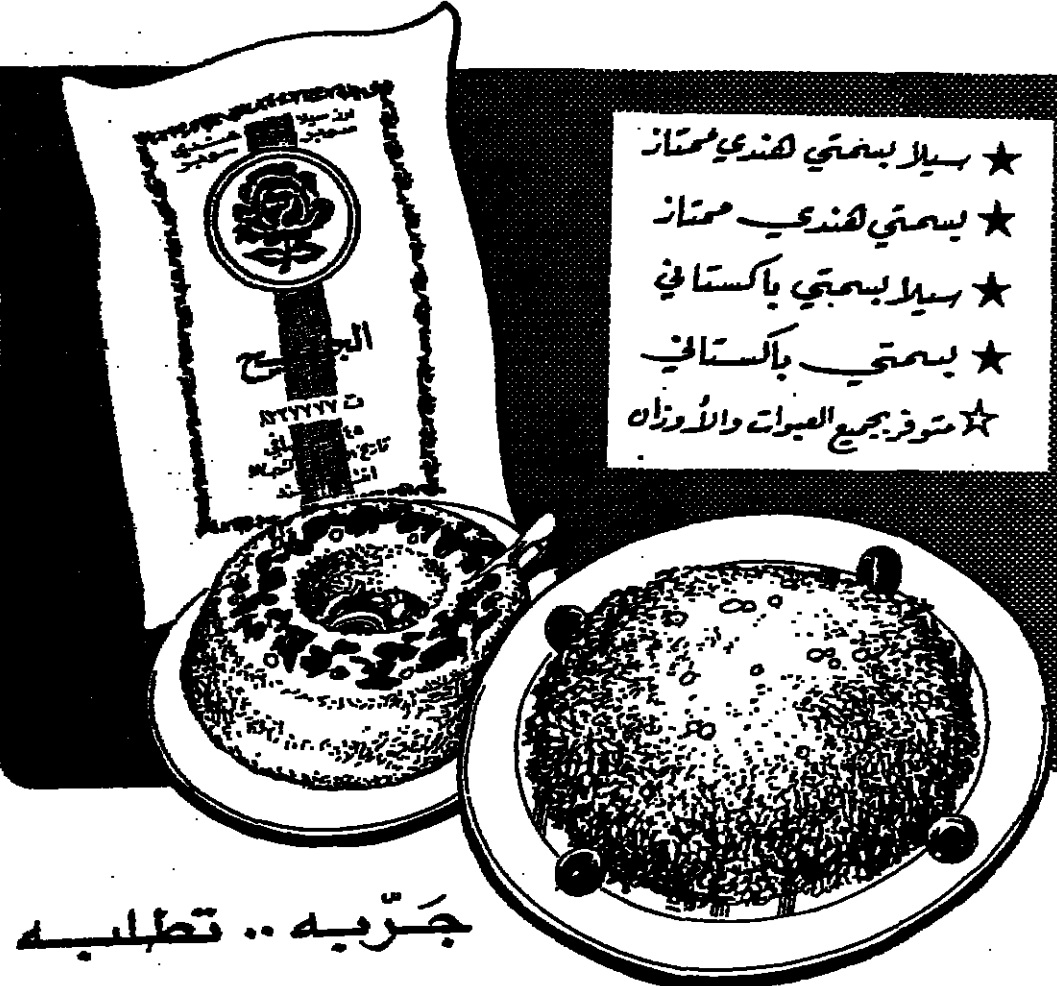 سيلا بسمتي هندي ممتاز
بسمتي هندي ممتاز
سيلا بسمتي باكستاني
بسمتي باكستاني
متوفر بجميع العبوات والأوزان
سيلا
هندي سوبر
ت
٤٥
جَرّبه .. تطلبه